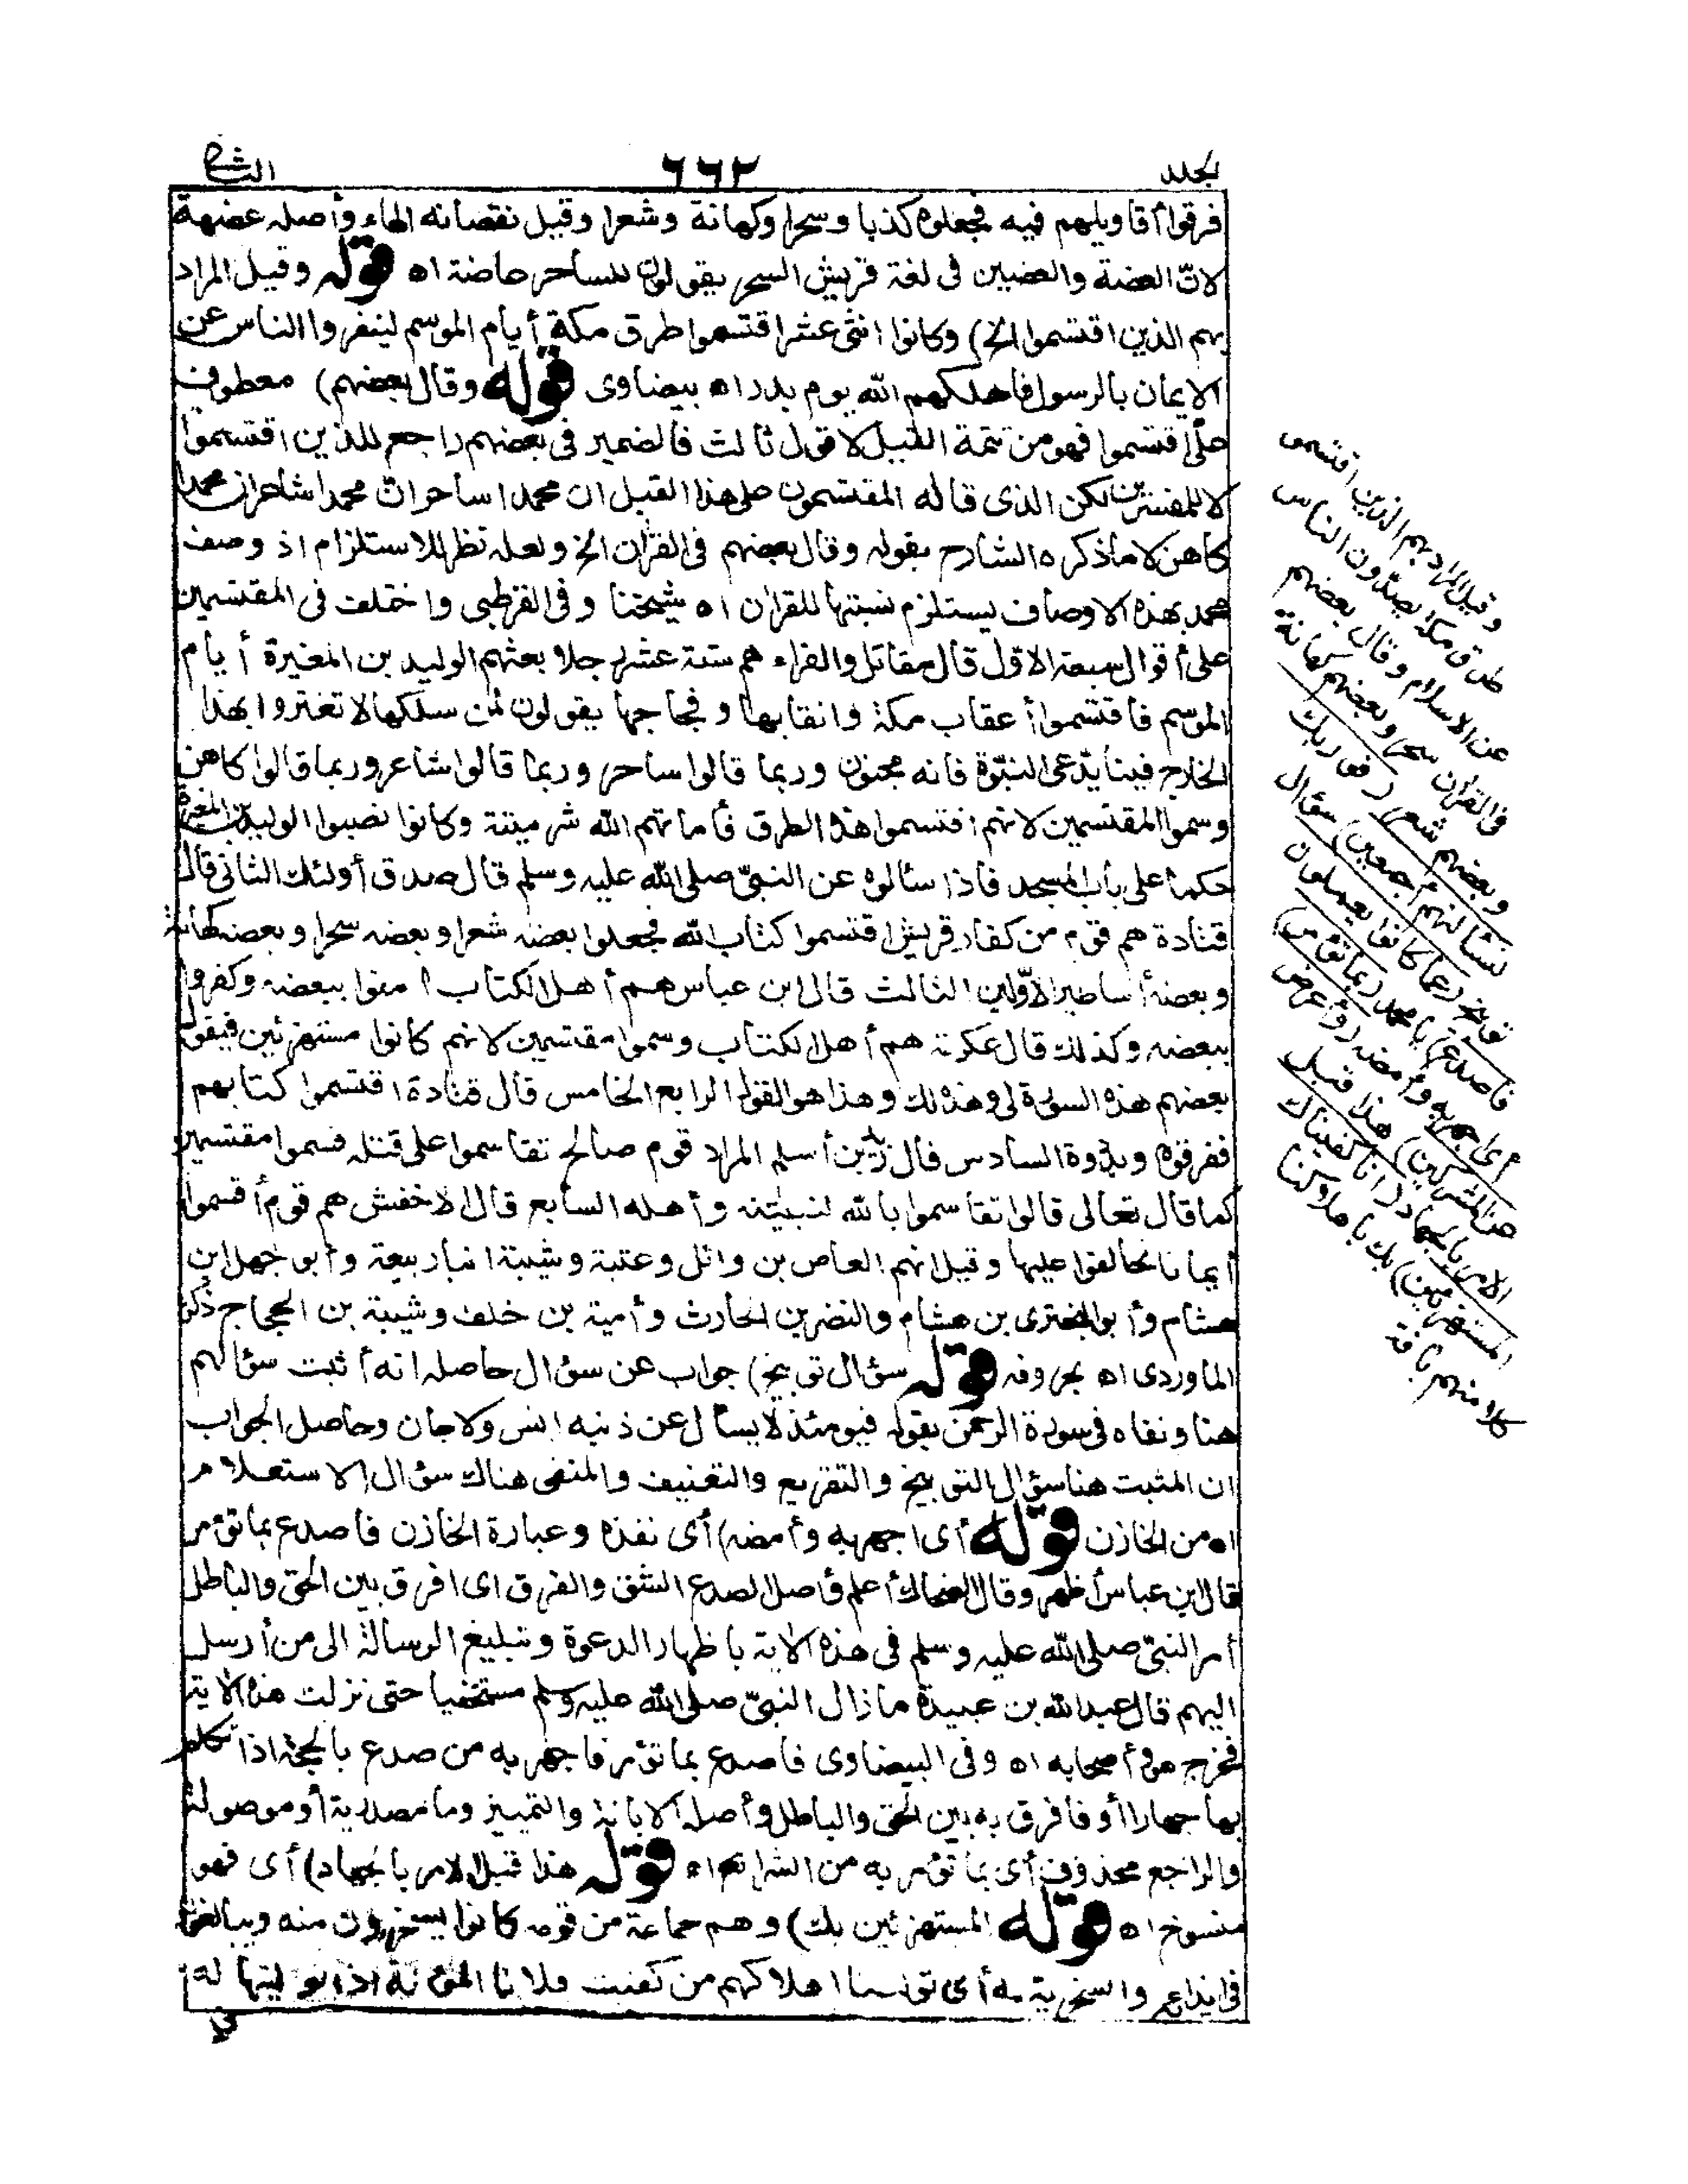 المجلد
٦٦٢
الشاني
فرقوا أقاويلهم فيه فجعلوه كذبا وسحرا وكهانة وشعرا وقيل نقصانه الهاء وأصله عضهة
لانّ العضة والعضين فى لغة قريش السحر يقولون للساحر عاضة اه قوله وقيل المراد
بهم الذين اقتسموا الخ) وكانوا اثنى عشر اقتسموا طرق مكة أيام الموسم لينفروا الناس عن
الايمان بالرسول فاهلكهم الله يوم بدر اه بيضاوى قوله وقال بعضهم) معطوف
على اقتسموا فهو من تتمة القيل لا قول ثالث فالضمير فى بعضهم راجع للذين اقتسموا
لا للمفسرين لكن الذى قاله المقتسمون على هذا القيل ان محمدا ساحر ان محمدا شاعر ان محمدا
كاهن لا ما ذكره الشارح بقوله وقال بعضهم فى القرآن الخ ولعله نظر للاستلزام اذ وصف
محمد بهذه الاوصاف يستلزم نسبتها للقرآن اه شيخنا وفى القرطبى واختلف فى المقتسمين
على أقوال سبعة الاول قال مقاتل والفراء هم ستة عشر رجلا بعثهم الوليد بن المغيرة أيام
الموسم فاقتسموا أعقاب مكة وانقابها وفجاجها يقولون لمن سلكها لا تغتروا بهذا
الخارج فينا يدّعى النبوّة فانه مجنون وربما قالوا ساحر وربما قالوا شاعر وربما قالوا كاهن
وسموا المقتسمين لانهم اقتسموا هذا الطرق فأماتهم الله شر ميتة وكانوا نصبوا الوليد بن المغيرة
حكما على باب المسجد فاذا سألوه عن النبىّ صلى الله عليه وسلم قال صدق أولئك الثانى قال
قتادة هم قوم من كفار قريش اقتسموا كتاب الله فجعلوا بعضه شعرا وبعضه سحرا وبعضه كهانة
وبعضه أساطير الاوّلين الثالث قال ابن عباس هم أهل الكتاب امنوا ببعضه وكفروا
ببعضه وكذلك قال عكرمة هم أهل الكتاب وسموا مقتسمين لانهم كانوا مستهزئين فيقول
بعضهم هذه السورة لى وهذه لك وهذا هو القول الرابع الخامس قال قتادة اقتسموا كتابهم
ففرقوه وبدّدوه السادس قال زيد بن أسلم المراد قوم صالح تقاسموا على قتله فسموا مقتسمين
كما قال تعالى قالوا تقاسموا بالله لنبيتنه وأهله السابع قال الاخفش هم قوم أقسموا
أيمانا تحالفوا عليها وقيل انهم العاص بن وائل وعتبة وشيبة ابنا ربيعة وأبو جهل ابن
هشام وأبو البخترى بن هشام والنضر بن الحارث وأمية بن خلف وشيبة بن الحجاج ذكره
الماوردى اه بحروفه قوله سؤال توبيخ) جواب عن سؤال حاصله انه أثبت سؤالهم
هنا ونفاه فى سورة الرحمن بقوله فيومئذ لا يسأل عن ذنبه انس ولا جان وحاصل الجواب
ان المثبت هنا سؤال التوبيخ والتقريع والتعنيف والمنفى هناك سؤال الاستعلام
اه من الخازن قوله أى اجهر به وأمضه) أى نفذه وعبارة الخازن فاصدع بما تؤمر
قال ابن عباس أظهر وقال الضحاك أعلم وأصل الصدع الشق والفرق اى افرق بين الحق والباطل
أمر النبىّ صلى الله عليه وسلم فى هذه الاية باظهار الدعوة وتبليغ الرسالة الى من أرسل
اليهم قال عبد الله بن عبيدة ما زال النبىّ صلى الله عليه وسلم مستخفيا حتى نزلت هذه الاية
فخرج هو وأصحابه اه وفى البيضاوى فاصدع بما تؤمر فاجهر به من صدع بالحجة اذا تكلم
بها جهارا أو فافرق به بين الحق والباطل وأصله الابانة والتمييز وما مصدرية أو موصولة
والراجع محذوف أى بما تؤمر به من الشرائع اه قوله هذا قبل الامر بالجهاد) أى فهو
منسوخ اه قوله المستهزئين بك) وهم جماعة من قومه كانوا يسخرون منه ويبالغون
فى ايذائه والسخرية به أى تولينا اهلاكهم من كفيت فلانا المؤنة اذا توليتها له
وقيل المراد بهم الذين اقتسموا
طرق مكة يصدّون الناس
عن الاسلام وقال بعضهم
فى القرآن سحر وبعضهم كهانة
وبعضهم شعر (فو ربك
لنسألنهم أجمعين) سؤال
توبيخ (عما كانوا يعملون
فاصدع) يا محمد (بما تؤمر)
اى اجهر به وأمضه (وأعرض
عن المشركين) هذا قبل
الامر بالجهاد (انا كفيناك
المستهزئين) بك باهلاكنا
كلا منهم بآفة